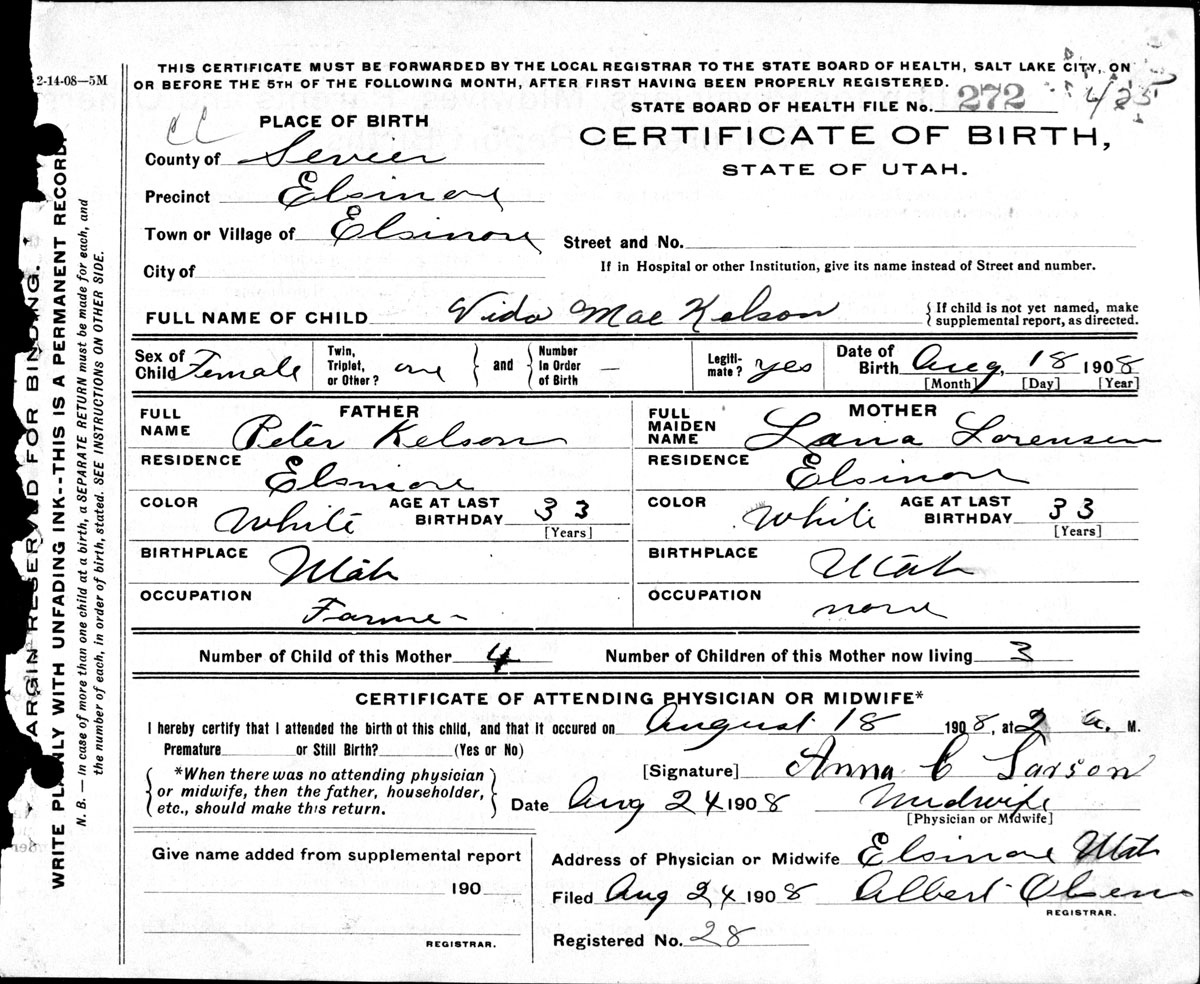 2-14-08—5M
THIS CERTIFICATE MUST BE FORWARDED BY THE LOCAL REGISTRAR TO THE STATE BOARD OF HEALTH, SALT LAKE CITY, ON
OR BEFORE THE 5TH OF THE FOLLOWING MONTH, AFTER FIRST HAVING BEEN PROPERLY REGISTERED.
STATE BOARD OF HEALTH FILE No. 272
CERTIFICATE OF BIRTH,
STATE OF UTAH.
PLACE OF BIRTH
County of Sevier
Precinct Elsinore
Town or Village of Elsinore
Street and No.
City of
If in Hospital or other Institution, give its name instead of Street and number.
FULL NAME OF CHILD Vida Mae Kelson
{If child is not yet named, make
supplemental report, as directed.
Sex of Child Female
Twin, Triplet, or Other? one } and { Number In Order of Birth —
Legitimate? yes
Date of Birth Aug, 18 1908
[Month] [Day] [Year]
FATHER
FULL NAME Peter Kelson
RESIDENCE Elsinore
COLOR White AGE AT LAST BIRTHDAY 33
[Years]
BIRTHPLACE Utah
OCCUPATION Farmer
MOTHER
FULL MAIDEN NAME Lana Lorensen
RESIDENCE Elsinore
COLOR White AGE AT LAST BIRTHDAY 33
[Years]
BIRTHPLACE Utah
OCCUPATION none
Number of Child of this Mother 4 Number of Children of this Mother now living 3
CERTIFICATE OF ATTENDING PHYSICIAN OR MIDWIFE*
I hereby certify that I attended the birth of this child, and that it occured on August 18 1908, at 2 a. M.
Premature or Still Birth? (Yes or No)
{*When there was no attending physician
or midwife, then the father, householder,
etc., should make this return.}
[Signature] Anna C Larson
Date Aug 24 1908 Midwife
[Physician or Midwife]
Give name added from supplemental report
190
REGISTRAR.
Address of Physician or Midwife Elsinore Utah
Filed Aug 24 1908 Albert Olsen
REGISTRAR.
Registered No. 28
MARGIN RESERVED FOR BINDING.
WRITE PLAINLY WITH UNFADING INK--THIS IS A PERMANENT RECORD.
N. B. — In case of more than one child at a birth, a SEPARATE RETURN must be made for each, and
the number of each, in order of birth, stated. SEE INSTRUCTIONS ON OTHER SIDE.